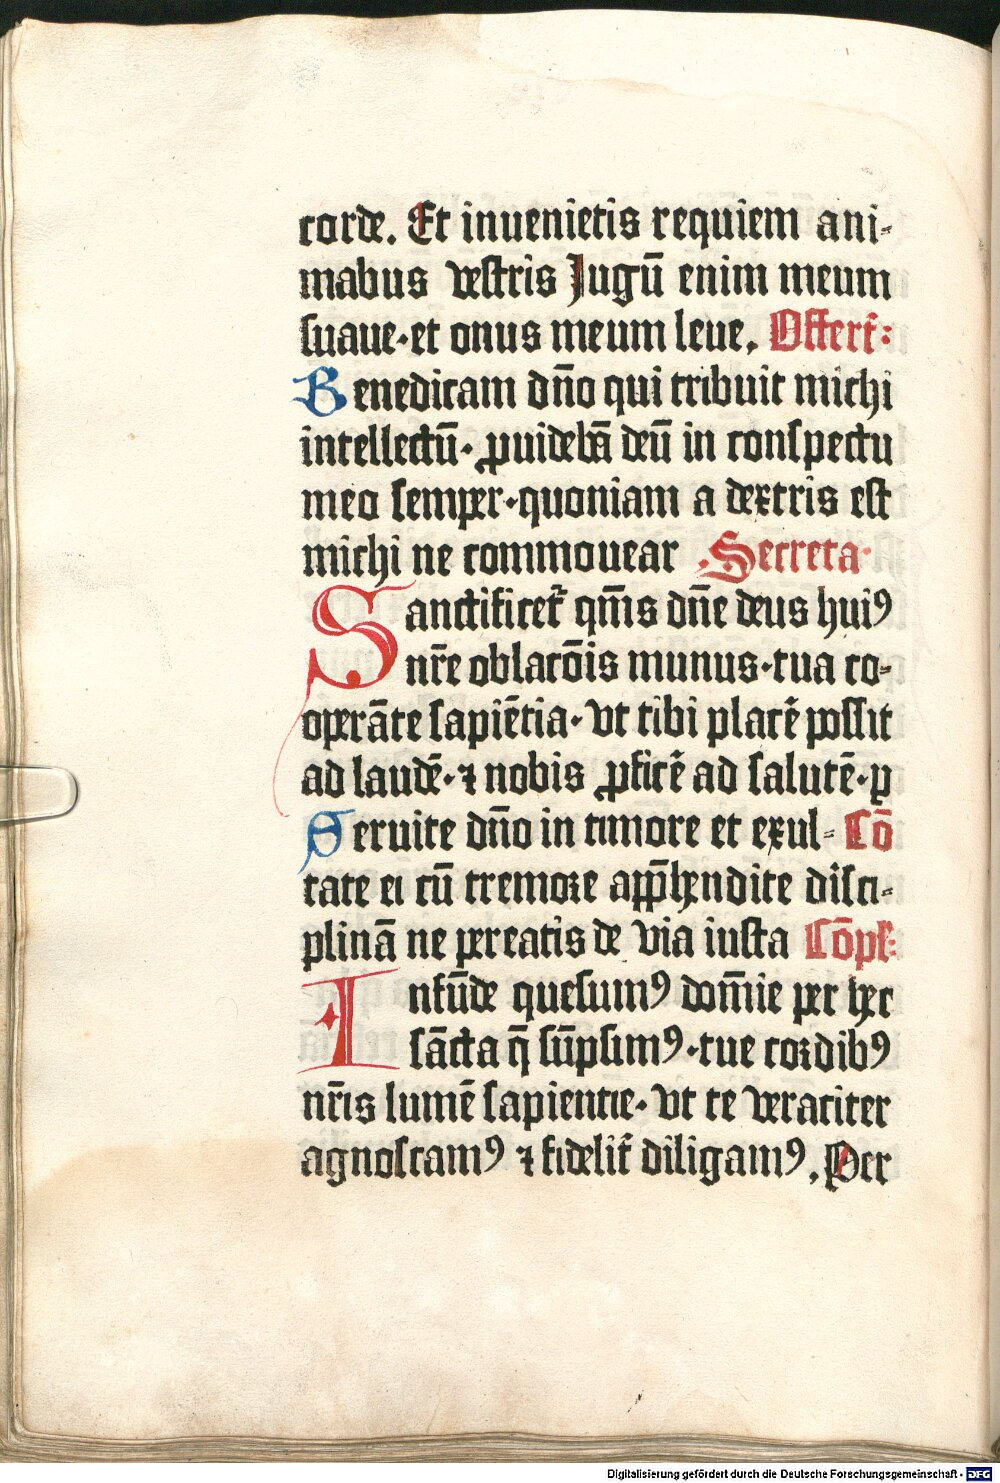 corde. Et inuenietis requiem ani-
mabus vestris Jugū enim meum
suaue·et onus meum leue, Offert̄:
Benedicam dn̄o qui tribuit michi
intellectū· ꝓuidebā deū in conspectu
meo semper·quoniam a dextris est
michi ne commouear Secreta
Sanctificet᷑ qm̄s dn̄e deus huiꝰ
nr̄e oblacōis munus·tua co-
operāte sapiētia· vt tibi placē possit
ad laudē·⁊ nobis ꝓficē ad salutē·ꝑ
Seruite dn̄o in timore et exul- Cō
tate ei cū tremore app̄hendite disci-
plinā ne pereatis de via iusta Cōpl̄:
Infūde quesumꝰ dom̄ie per hec
sācta q̄ sūpsimꝰ·tue cordibꝰ
nr̄is lumē sapientie· vt te veraciter
agnoscamꝰ ⁊ fidelit᷑ diligamꝰ, Per
Digitalisierung gefördert durch die Deutsche Forschungsgemeinschaft - DFG